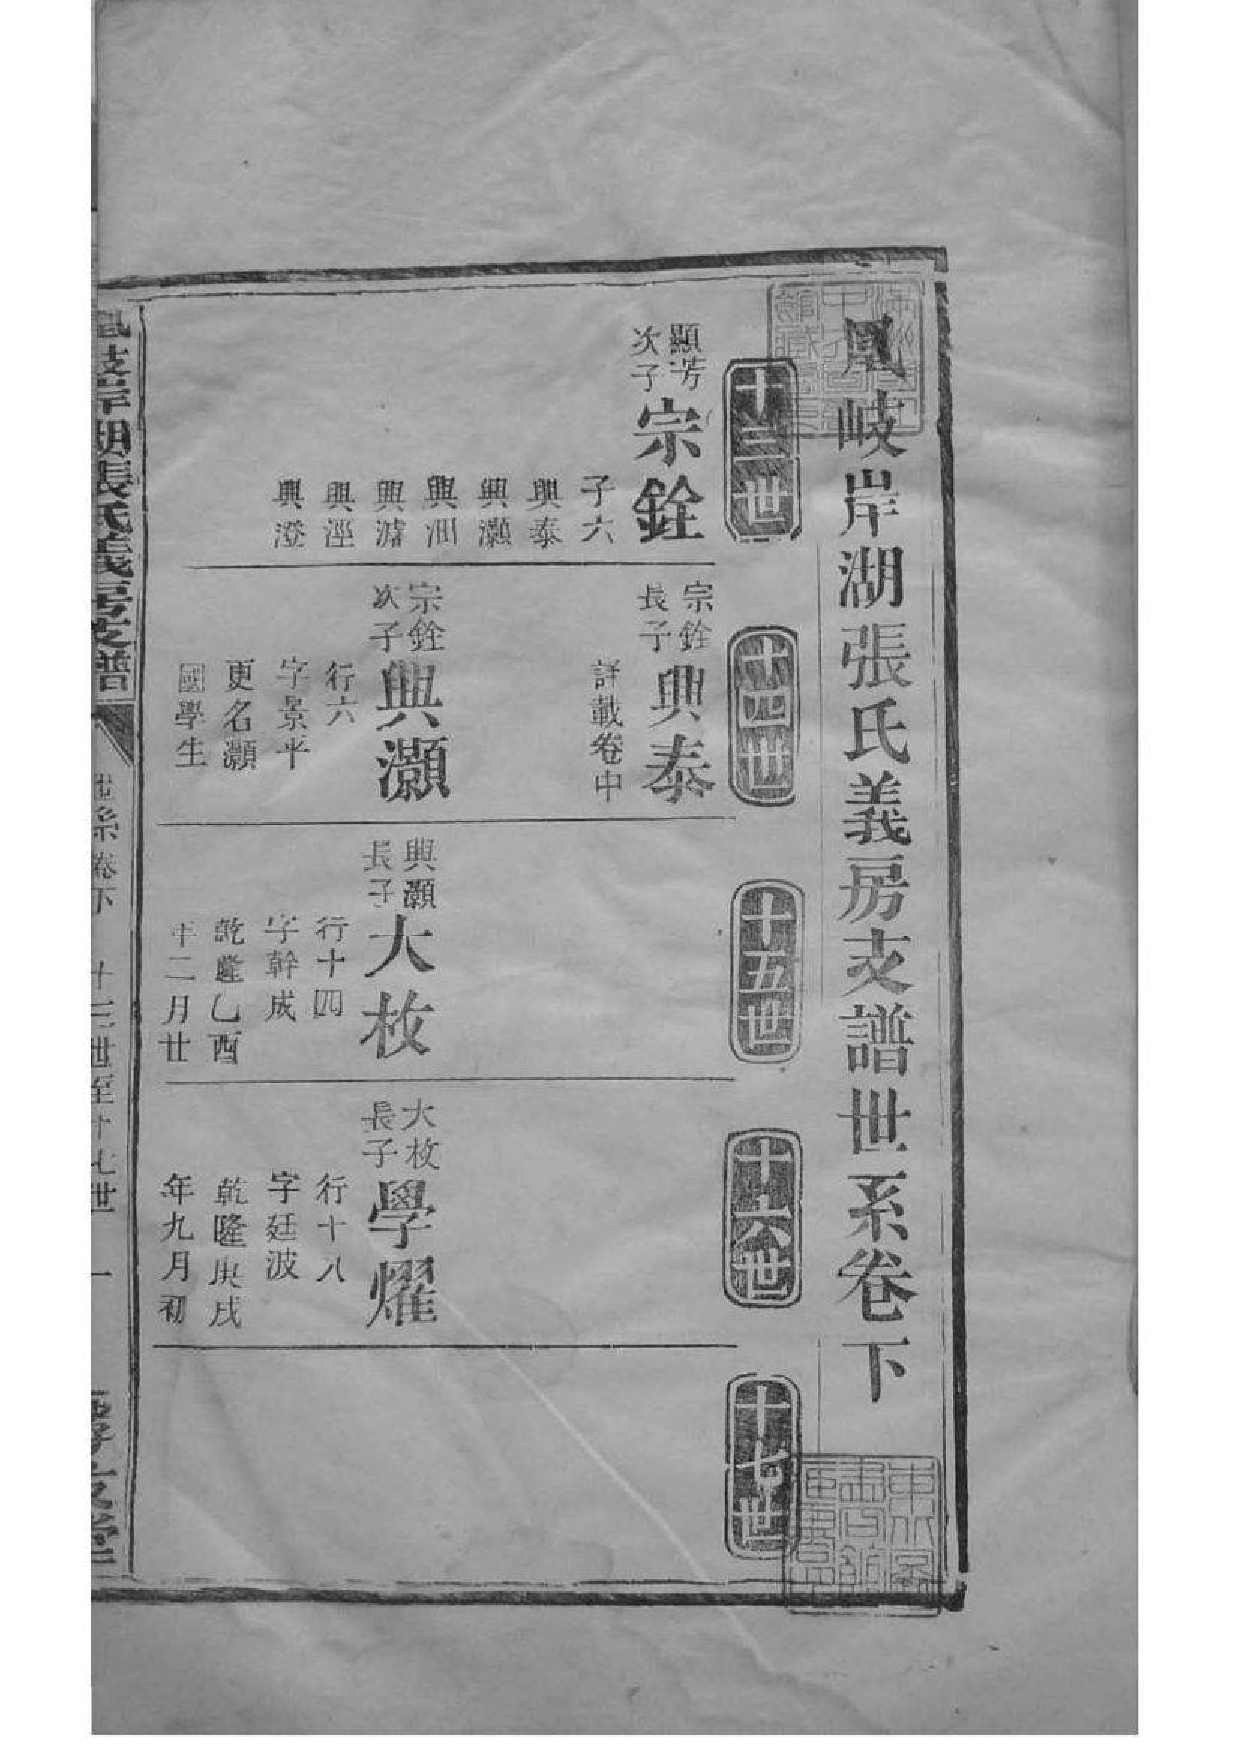 鳳岐岸湖張氏義房支譜世系卷下
十三世
十四世
十五世
十六世
十七世
顯芳
次子
宗銓
子六
興泰
興灝
興洲
興濬
興涇
興澄
宗銓
長子
興泰
詳載卷中
宗銓
次子
興灝
行六
字景平
更名灝
國學生
興灝
長子
大枚
行十四
字幹成
乾隆乙酉
年二月廿
大枚
長子
學燿
行十八
字廷波
乾隆庚戌
年九月初
鳳岐岸湖張氏義房支譜
世系卷下
十三世至十七世
一
孝友堂